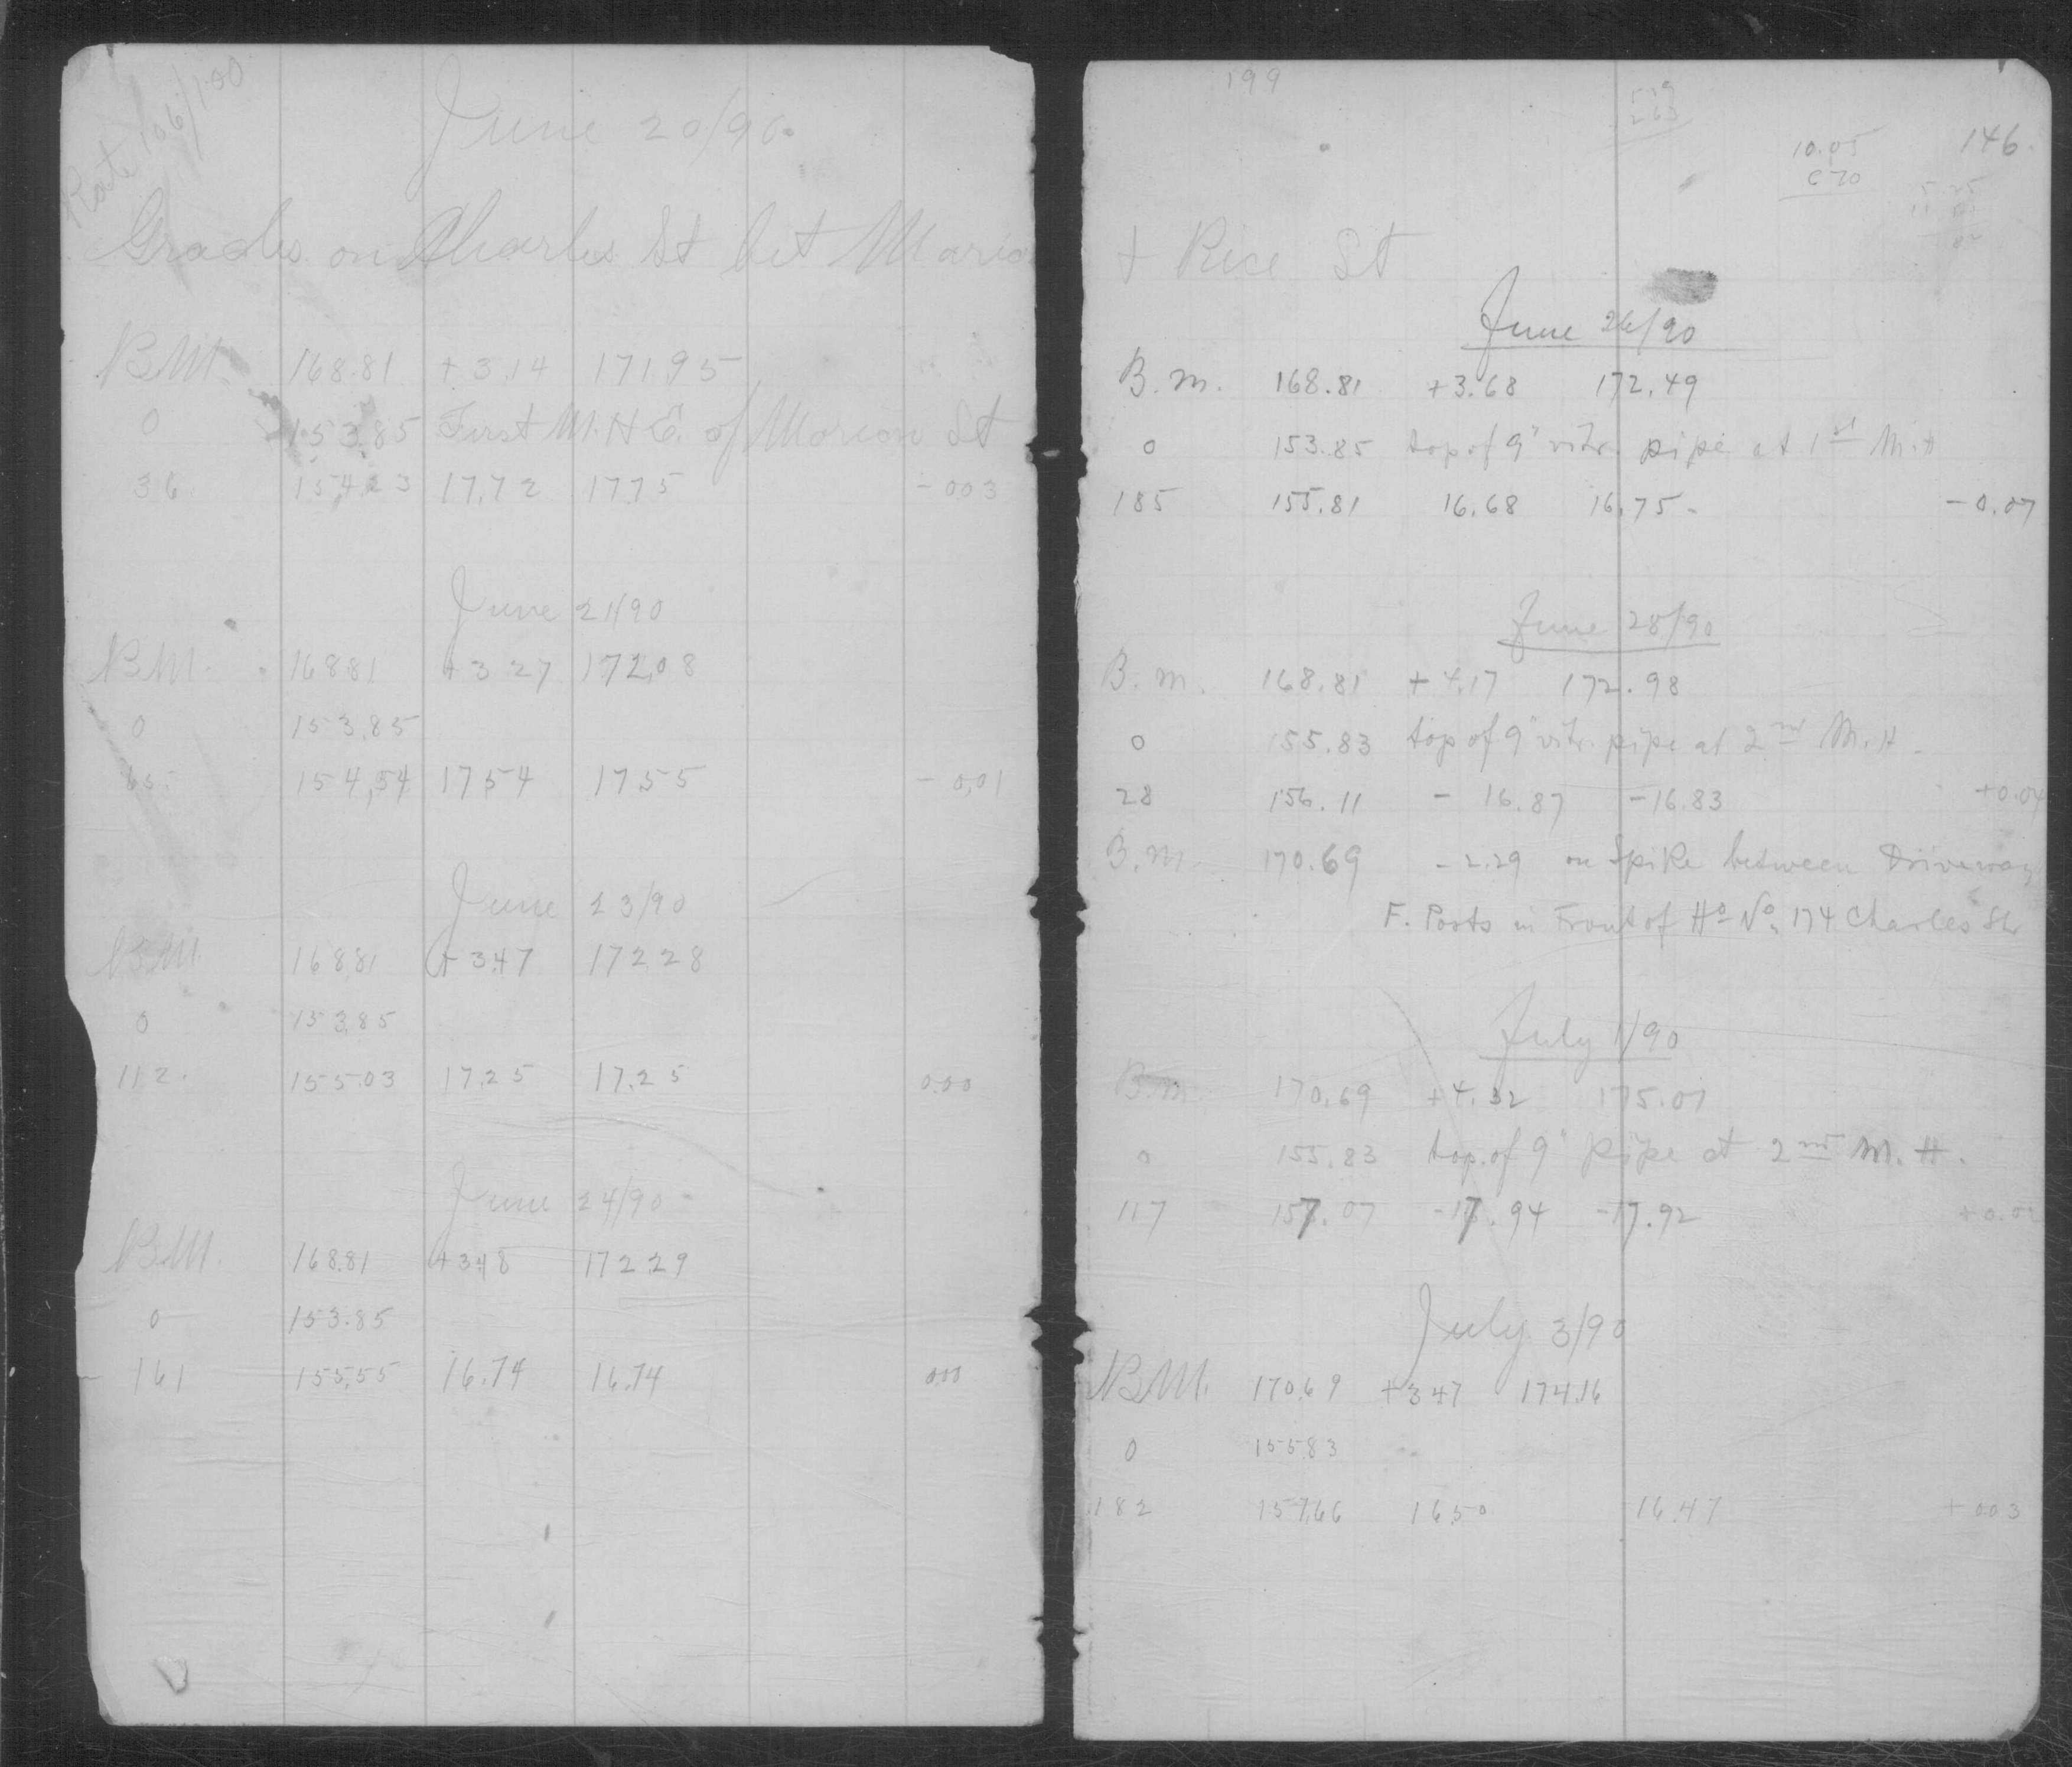 Rate 1.06/100
June 20/90.
Grades on Charles St bet Mario
B.M. 168.81 +3.14 171.95
0 153.85 First M.H E. of Marion St
36 154.23 17.72 17.75 -003
June 21/90
B.M. 168.81 +3.27 172.08
0 153.85
65 154.54 17.54 17.55 -0.01
June 23/90
B.M. 168.81 +3.47 172.28
0 153.85
112. 155.03 17.25 17.25 0.00
June 24/90
B.M. 168.81 +3.48 172.29
0 153.85
161 155.55 16.74 16.74 000
199
146.
10.05
+ Rice St
June 26/90
B.M. 168.81 +3.68 172.49
0 153.85 top of 9" vitr. pipe at 1st M.H
185 155.81 16.68 16.75- -0.07
June 28/90
B.M. 168.81 +4.17 172.98
0 155.83 top of 9" vitr. pipe at 2nd M.H.
28 156.11 - 16.87 -16.83 +0.04
B.M. 170.69 -2.29 on Spike between Driveway
F. Posts in Front of Ho No. 174 Charles Str
July 1/90
B.M. 170.69 +4.32 175.01
0 155.83 top of 9" pipe at 2nd M.H.
117 157.07 -17.94 -17.92 +0.02
July 3/90
B.M. 170.69 +3.47 174.16
0 155.83
182 157.66 16.50 16.47 +0.03